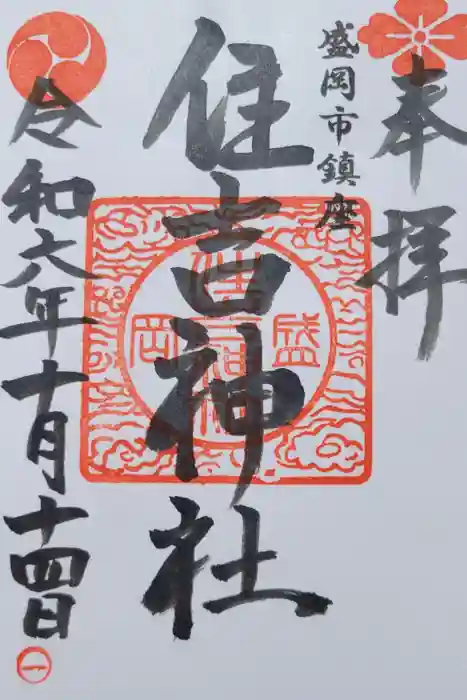 奉拝
盛岡市鎮座
住吉神社
盛岡
令和六年十月十四日
一